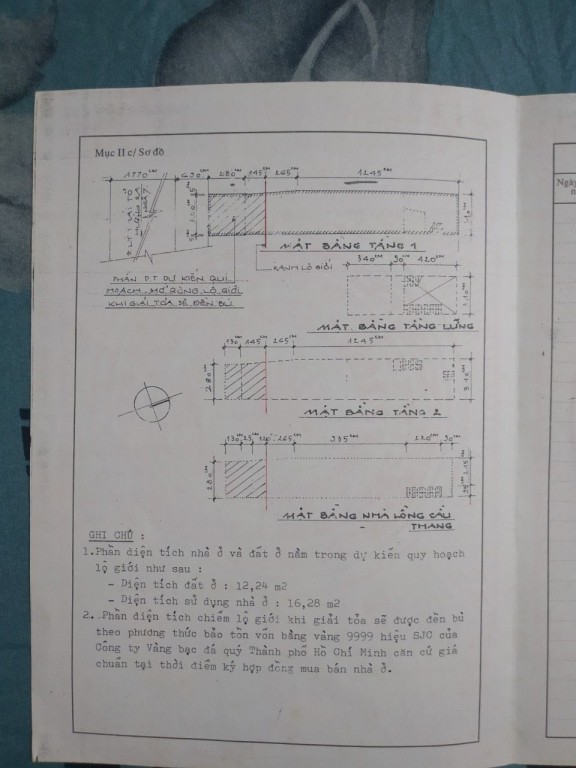 Mục II c/ Sơ đồ
Ngày
1770ᶜᵐ 630ᶜᵐ 280ᶜᵐ 145ᶜᵐ 265ᶜᵐ 1245ᶜᵐ
MẶT BẰNG TẦNG 1
RANH LỘ GIỚI
PHẦN D.T DỰ KIẾN QUI
HOẠCH MỞ RỘNG LỘ GIỚI
KHI GIẢI TỎA SẼ ĐỀN BÙ
340ᶜᵐ 90ᶜᵐ 420ᶜᵐ
110ᶜᵐ
MẶT BẰNG TẦNG LỬNG
130ᶜᵐ 145ᶜᵐ 265ᶜᵐ 1245ᶜᵐ
280ᶜᵐ
310ᶜᵐ
MẶT BẰNG TẦNG 2
280ᶜᵐ
MẶT BẰNG NHÀ LỒNG CẦU
THANG
GHI CHÚ :
1.Phần diện tích nhà ở và đất ở nằm trong dự kiến quy hoạch
lộ giới như sau :
- Diện tích đất ở : 12,24 m2
- Diện tích sử dụng nhà ở : 16,28 m2
2. Phần diện tích chiếm lộ giới khi giải tỏa sẽ được đền bù
theo phương thức bảo tồn vốn bằng vàng 9999 hiệu SJC của
Công ty Vàng bạc đá quý Thành phố Hồ Chí Minh căn cứ giá
chuẩn tại thời điểm ký hợp đồng mua bán nhà ở.